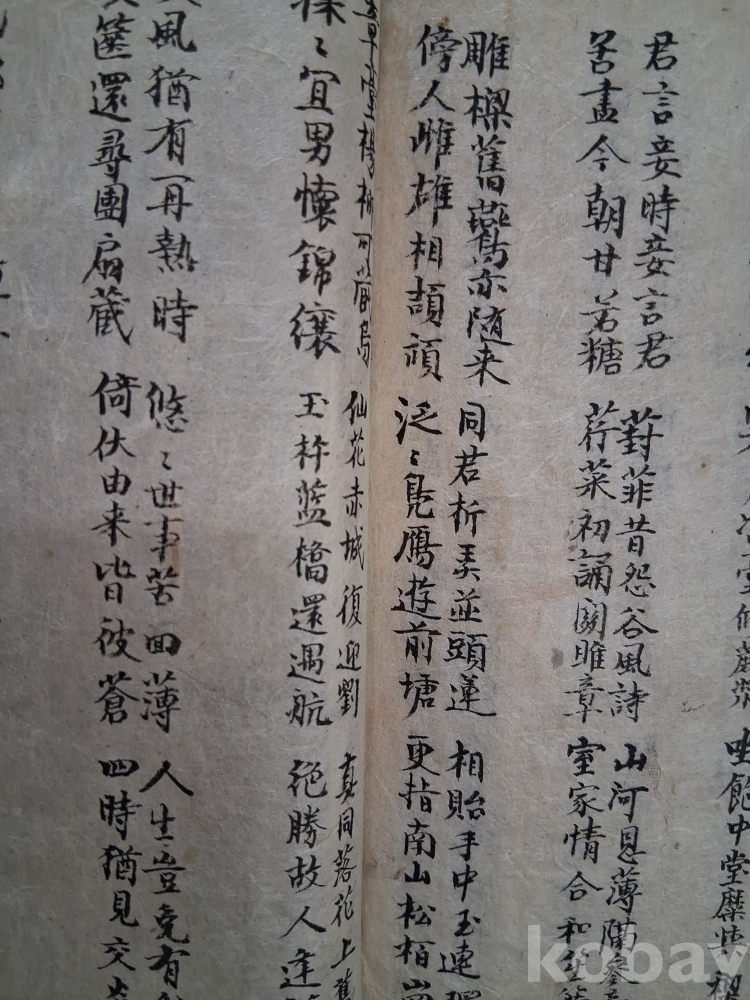 唯飽中堂糜
君言妾時妾言君 葑菲昔怨谷風詩 山河恩薄
苦盡今朝甘若糖 荇菜初誦關雎章 室家情合和
雕樑舊鷰亦随来 同君折美並頭蓮 相貽手中玉連
傍人雌雄相頡頏 泛〻鳧鴈遊前塘 更指南山松栢
章臺楊柳可藏烏 仙花赤城復迎劉 真同落花上舊
〻宜男懷錦纕 玉杵藍橋還遇航 絶勝故人逢
風猶有一再熱時 悠〻世事苦回薄 人生豈免有
篋還尋團扇藏 倚伏由来皆彼蒼 四時猶見交
kobay